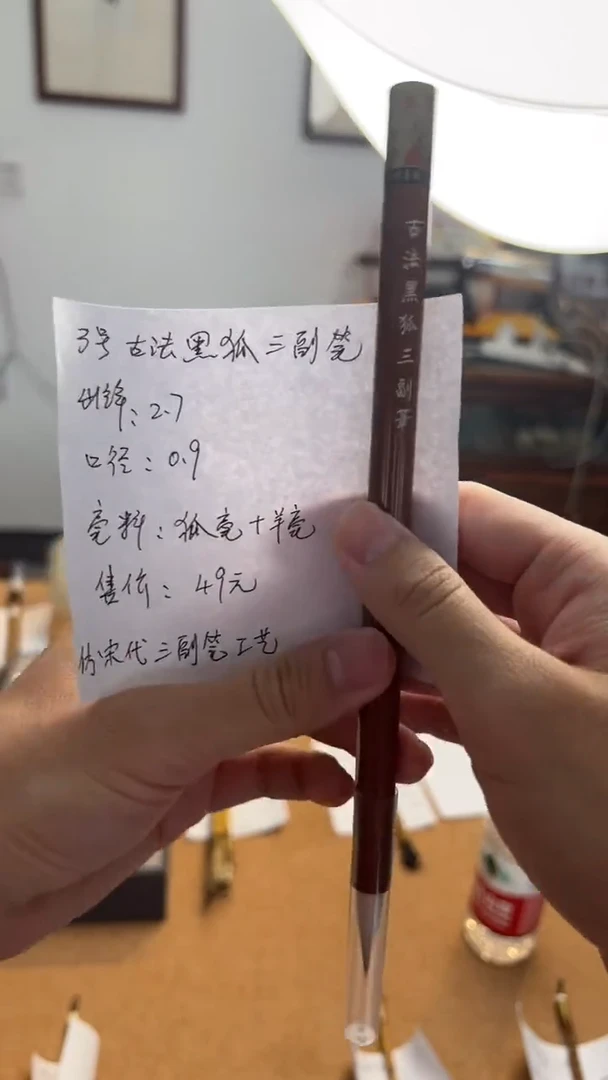 3号 古法黑狐三副笔
出锋：2.7
口径：0.9
毫料：狐毫+羊毫
售价：49元
仿宋代三副笔工艺
古法黑狐三副笔